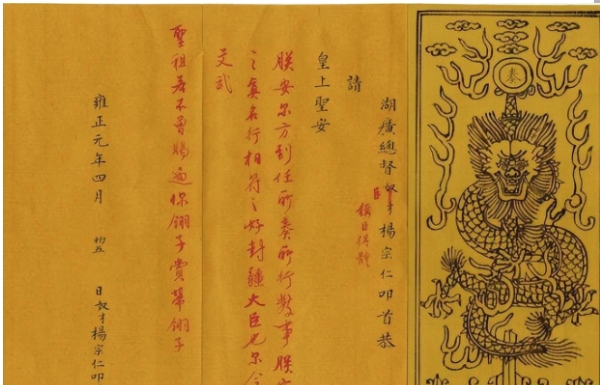 奏
湖廣總督奴才楊宗仁叩首恭
臣
稱臣得體
請
皇上聖安
朕安尔方到任所奏所行數事朕
之真名行相符之好封疆大臣也尔
文武
聖祖若不曾賜過你翎子賞單翎子
雍正元年四月 初五 日奴才楊宗仁叩